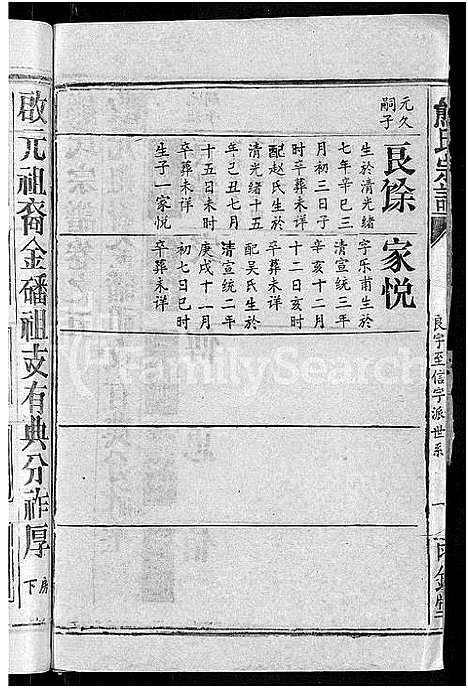 熊氏宗譜
良字至信字派世系 一
元久
嗣子
良馀
生於清光緒
七年辛巳三
月初三日子
時卒葬未详
配赵氏生於
清光緒十五
年己丑七月
十五日未时
卒葬未详
生子一家悦
家悦
字乐甫生於
清宣统三年
辛亥十二月
十二日亥时
卒葬未详
配吴氏生於
清宣统二年
庚戌十一月
初七日巳时
卒葬未详
啟元祖裔金磻祖支有典分祚厚房下
FamilySearch